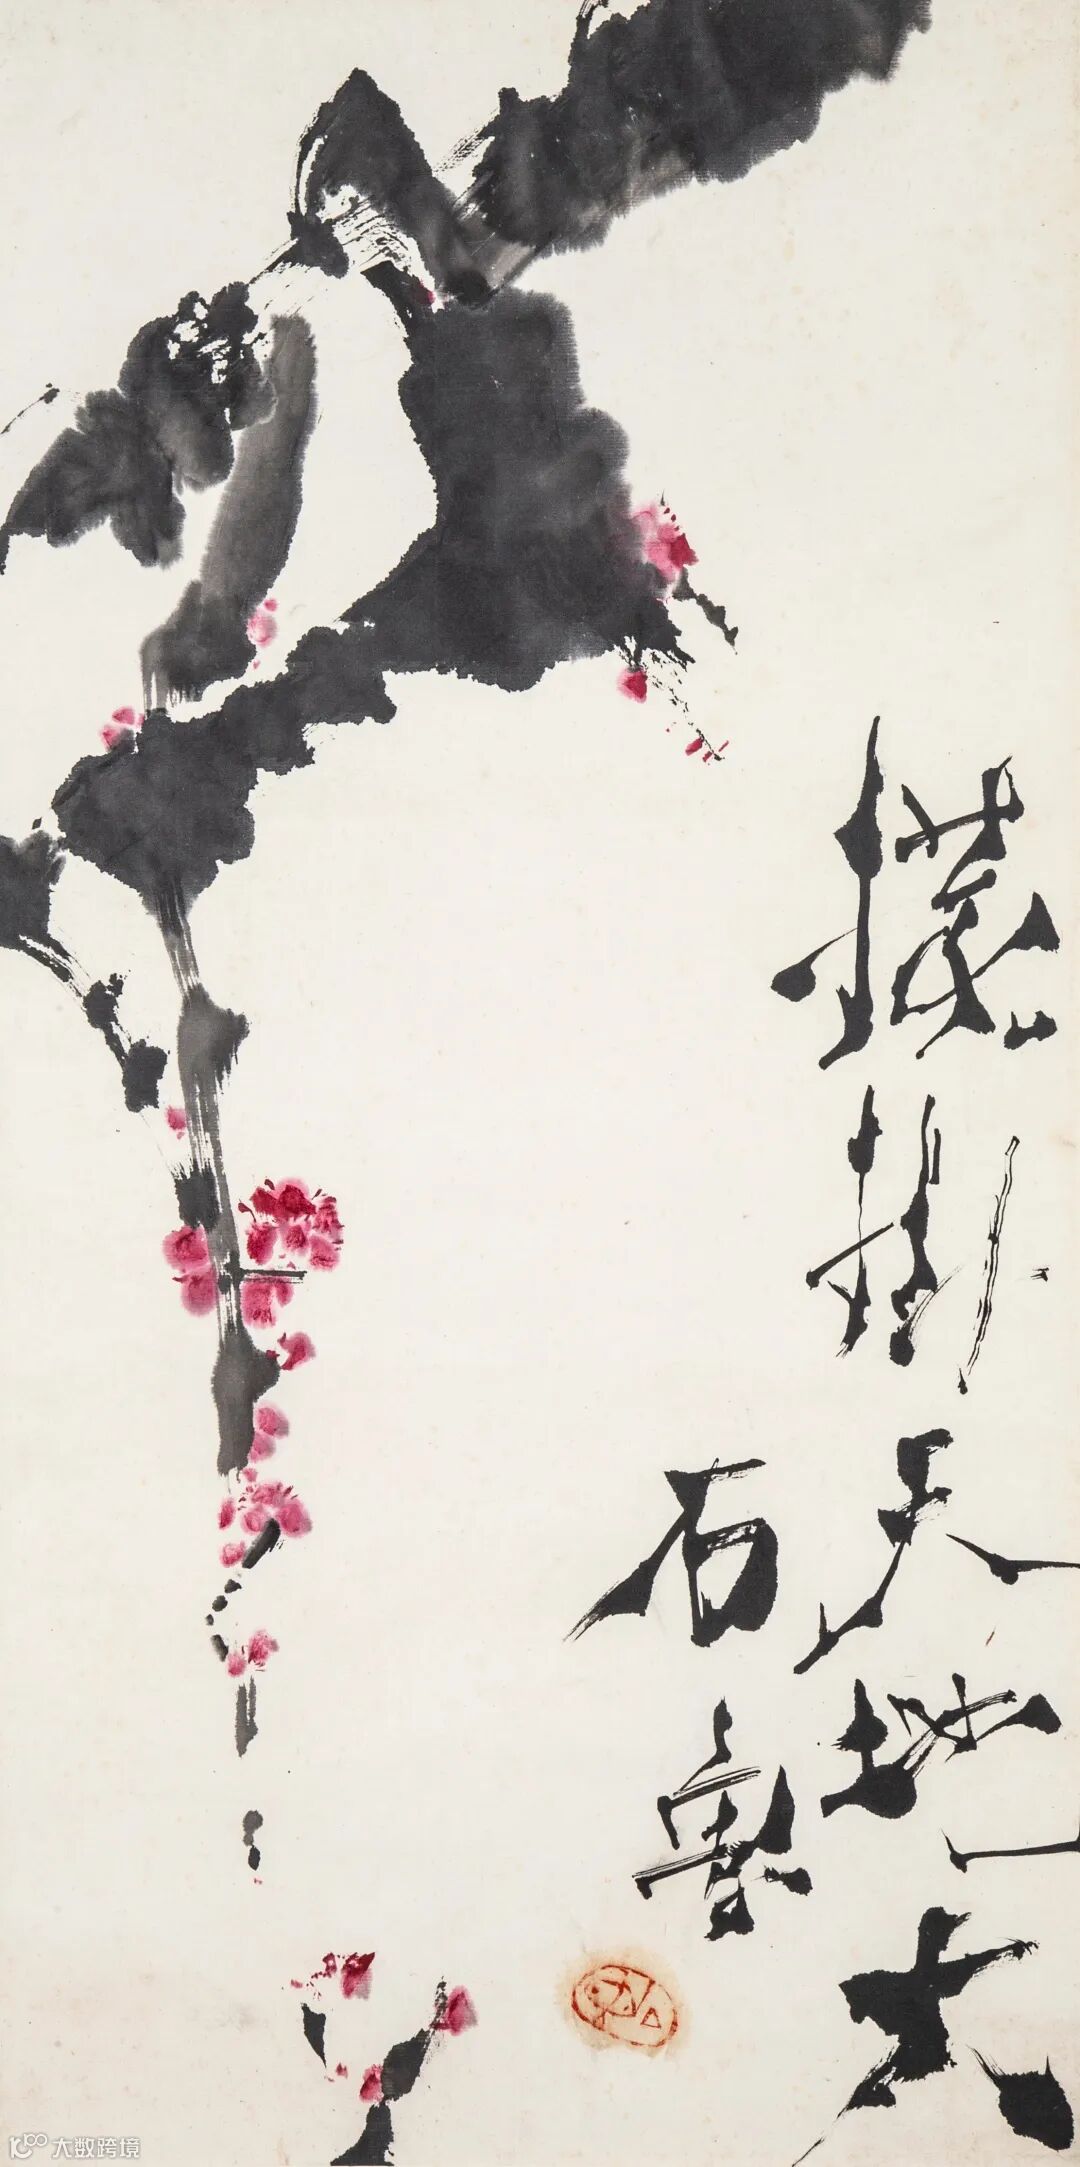 掛天地大
石魯
大数跨境